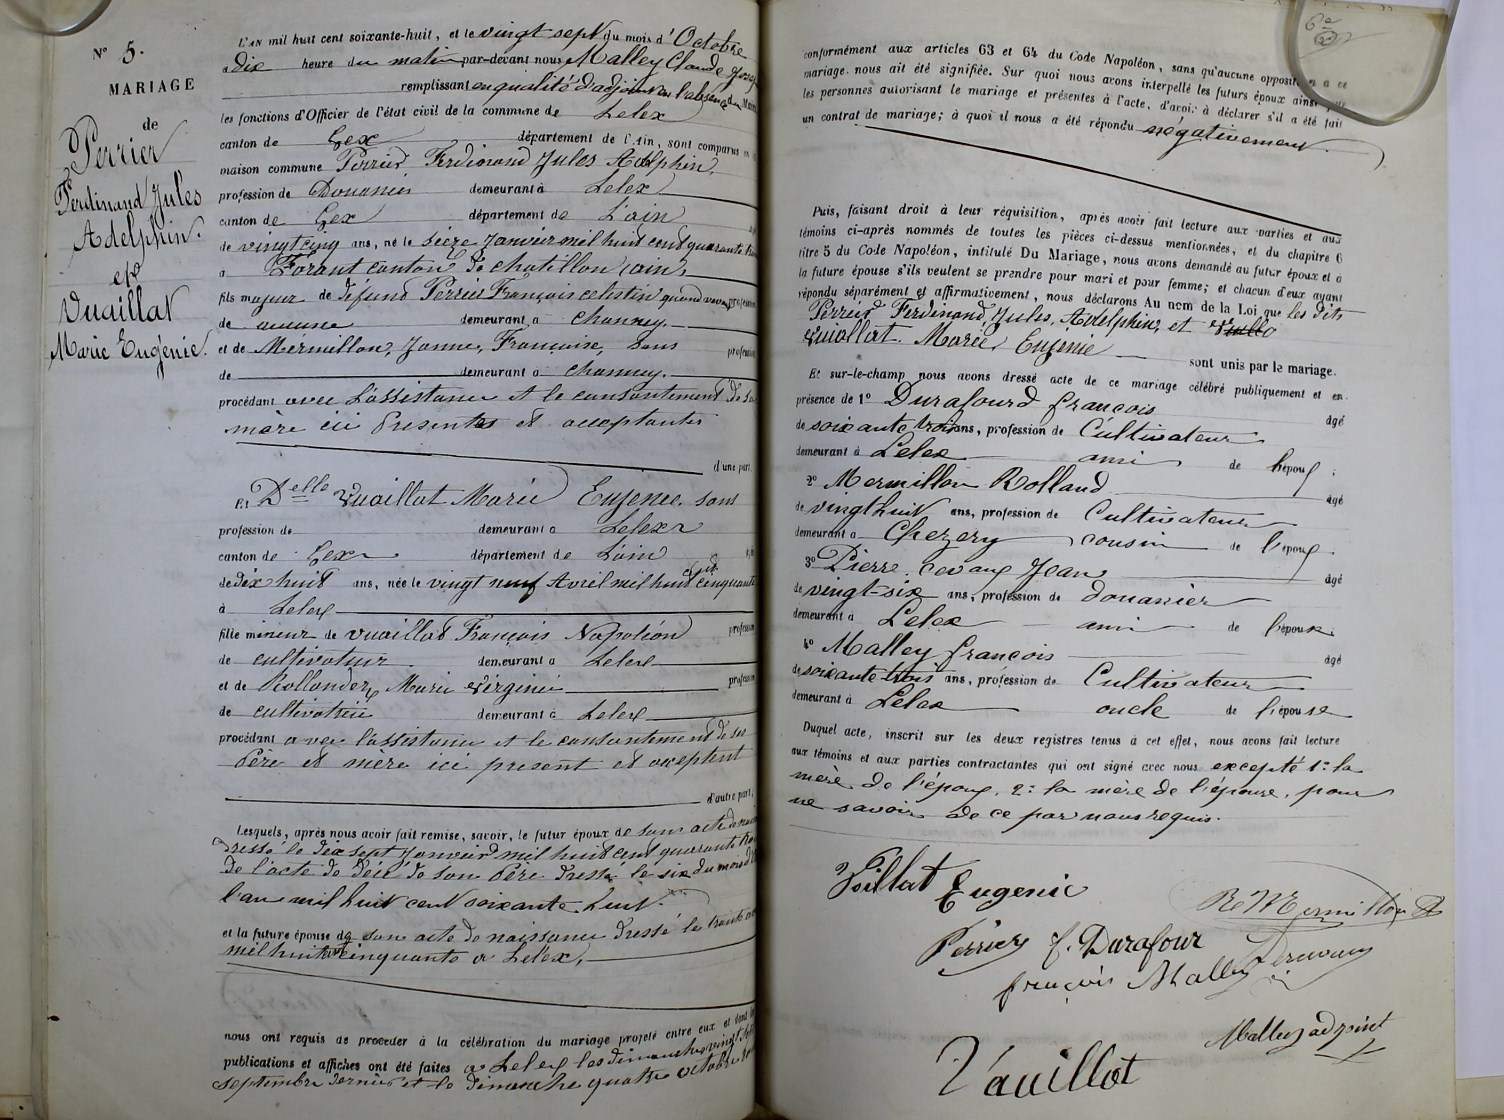 N° 5.
MARIAGE
de
Perrier
Ferdinand Jules
Adelphin.
et
Vuaillat
Marie Eugénie.
L'AN mil huit cent soixante-huit, et le vingt sept du mois d'Octobre
a dix heure du matin par-devant nous Malley Claude
remplissant en qualité d'adjoint en l'absence du Maire
les fonctions d'Officier de l'état civil de la commune de Lelex
canton de Gex département de l'Ain, sont comparus en
maison commune Perrier Ferdinand Jules Adelphin.
profession de Douanier demeurant à Lelex
canton de Gex département de L'ain
de vingt cinq ans, né le seize Janvier mil huit cent quarante
a Forant canton de chatillon (ain)
fils majeur de défund Perrier François celestin quand vivan profession
de aucune demeurant a channey.
et de Mermillon, Janne, Françoise, Sans profession
de demeurant a channey.
procédant avec L'assistance et le consantement de sa
mère ici Presentes et acceptantes
d'une part.
Et Delle Vuaillat Marie Eugenee. sans
profession de demeurant a Lelex
canton de Gex département de L'ain
de dix huit ans, née le vingt neuf Avril mil huit cent cinquante
à Lelex
fille mineur de Vuaillat François Napoléon profession
de cultivateur demeurant a Lelex
et de Rollandez Marie Virginie profession
de cultivatrice demeurant à Lelex
procédant avec l'assistance et le consantement de ses
Père et mère ici present et acceptent
d'autre part,
Lesquels, après nous avoir fait remise, savoir, le futur époux de son acte de
dressé le dix sept Janvier mil huit cent quarante
De l'acte de décé de son Père dressé le six du mois
l'an mil huit cent soixante huit.
et la future épouse de son acte de naissance dressé le trente
mil huit cent cinquante a Lelex,
nous ont requis de procéder à la célébration du mariage projeté entre eux et dont les
publications et affiches ont été faites a Lelex les dimanches vingt sept
septembre dernier et le dimanche quatre octobre
6e
conformément aux articles 63 et 64 du Code Napoléon, sans qu'aucune opposition a ce
mariage nous ait été signifiée. Sur quoi nous avons interpellé les futurs époux ainsi que
les personnes autorisant le mariage et présentes à l'acte, d'avoir à déclarer s'il a été fait
un contrat de mariage; à quoi il nous a été répondu négativement
Puis, faisant droit à leur réquisition, après avoir fait lecture aux parties et aux
témoins ci-après nommés de toutes les pièces ci-dessus mentionnées, et du chapitre 6
titre 5 du Code Napoléon, intitulé Du Mariage, nous avons demandé au futur époux et à
la future épouse s'ils veulent se prendre pour mari et pour femme; et chacun d'eux ayant
répondu séparément et affirmativement, nous déclarons Au nom de la Loi que les dits
Perrier Ferdinand, Jules, Adelphin, et
Vuiallat. Marie Eugénie sont unis par le mariage.
Et sur-le-champ nous avons dressé acte de ce mariage célébré publiquement et en
présence de 1° Durafourd françois âgé
de soixante trois ans, profession de Cultivateur
demeurant à Lelex ami de l'époux;
2° Mermillon Rolland âgé
de vingt huit ans, profession de Cultivateur
demeurant a Chezery cousin de l'époux
3° Pierre Jean âgé
de vingt-six ans, profession de douanier
demeurant à Lelex ami de l'épouse
4° Malley françois âgé
de soixante-trois ans, profession de Cultivateur
demeurant à Lelex oncle de l'épouse
Duquel acte, inscrit sur les deux registres tenus à cet effet, nous avons fait lecture
aux témoins et aux parties contractantes qui ont signé avec nous excepté 1: la
mère de l'époux, 2: la mère de l'épouse, pour
ne savoir de ce par nous requis.
Voillat Eugenie
Perrier f. Durafour
françois Malley
Malley adjoint
Vauillat